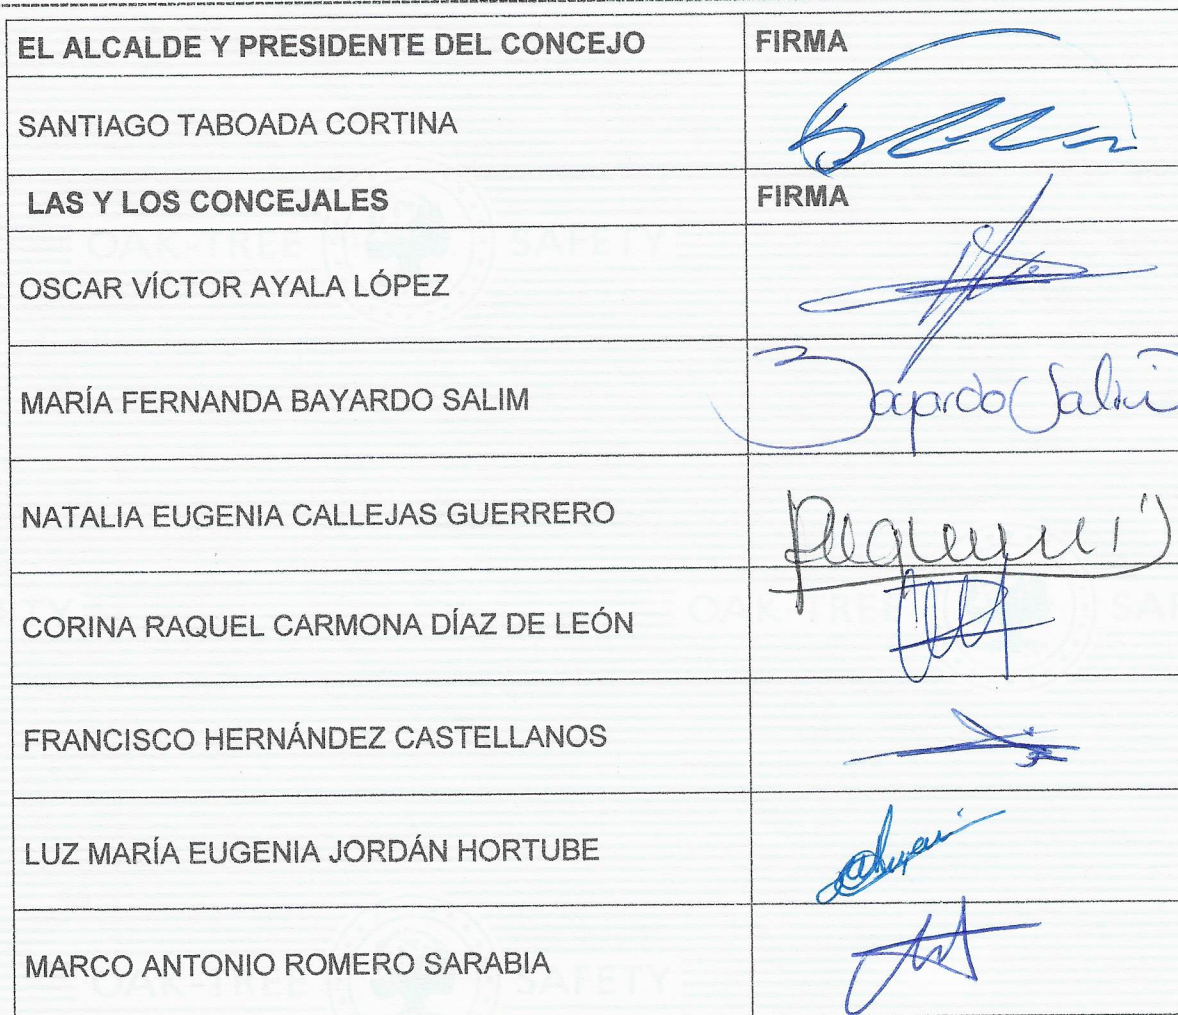 EL ALCALDE Y PRESIDENTE DEL CONCEJO FIRMA
SANTIAGO TABOADA CORTINA
LAS Y LOS CONCEJALES FIRMA
OAK-TREE SAFETY
OSCAR VÍCTOR AYALA LÓPEZ
MARÍA FERNANDA BAYARDO SALIM Bayardo Salim
NATALIA EUGENIA CALLEJAS GUERRERO
OAK-TREE
CORINA RAQUEL CARMONA DÍAZ DE LEÓN
FRANCISCO HERNÁNDEZ CASTELLANOS
LUZ MARÍA EUGENIA JORDÁN HORTUBE
MARCO ANTONIO ROMERO SARABIA
OAK-TREE SAFETY